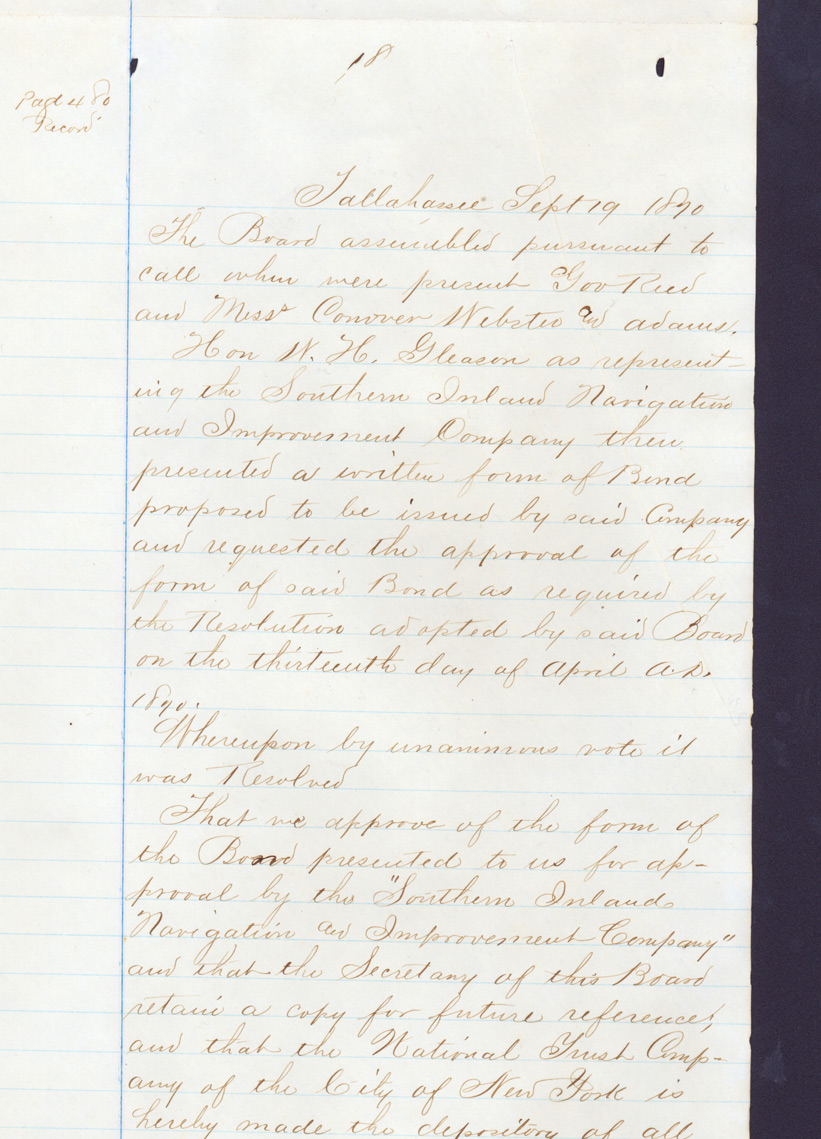 18
Page 480
Record
Tallahassee Sept 19 1870
The Board assembled pursuant to
call when were present Gov Reed
and Messrs Conover Webster and Adams.
Hon W. H. Gleason as represent-
ing the Southern Inland Navigation
and Improvement Company then
presented a written form of Bond
proposed to be issued by said Company
and requested the approval of the
form of said Bond as required by
the Resolution adopted by said Board
on the thirteenth day of April A.D.
1870.
Whereupon by unanimous vote it
was Resolved
That we approve of the form of
the Bond presented to us for ap-
proval by the "Southern Inland
Navigation and Improvement Company"
and that the Secretary of this Board
retain a copy for future reference,
and that the National Trust Comp-
any of the City of New York is
hereby made the depository of all